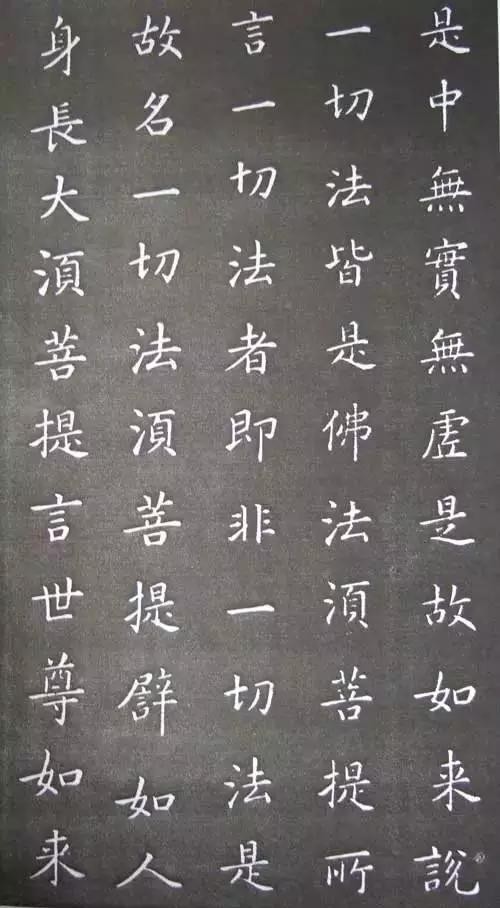 是中無實無虗是故如来說
一切法皆是佛法湏菩提所
言一切法者即非一切法是
故名一切法湏菩提譬如人
身長大湏菩提言世尊如来